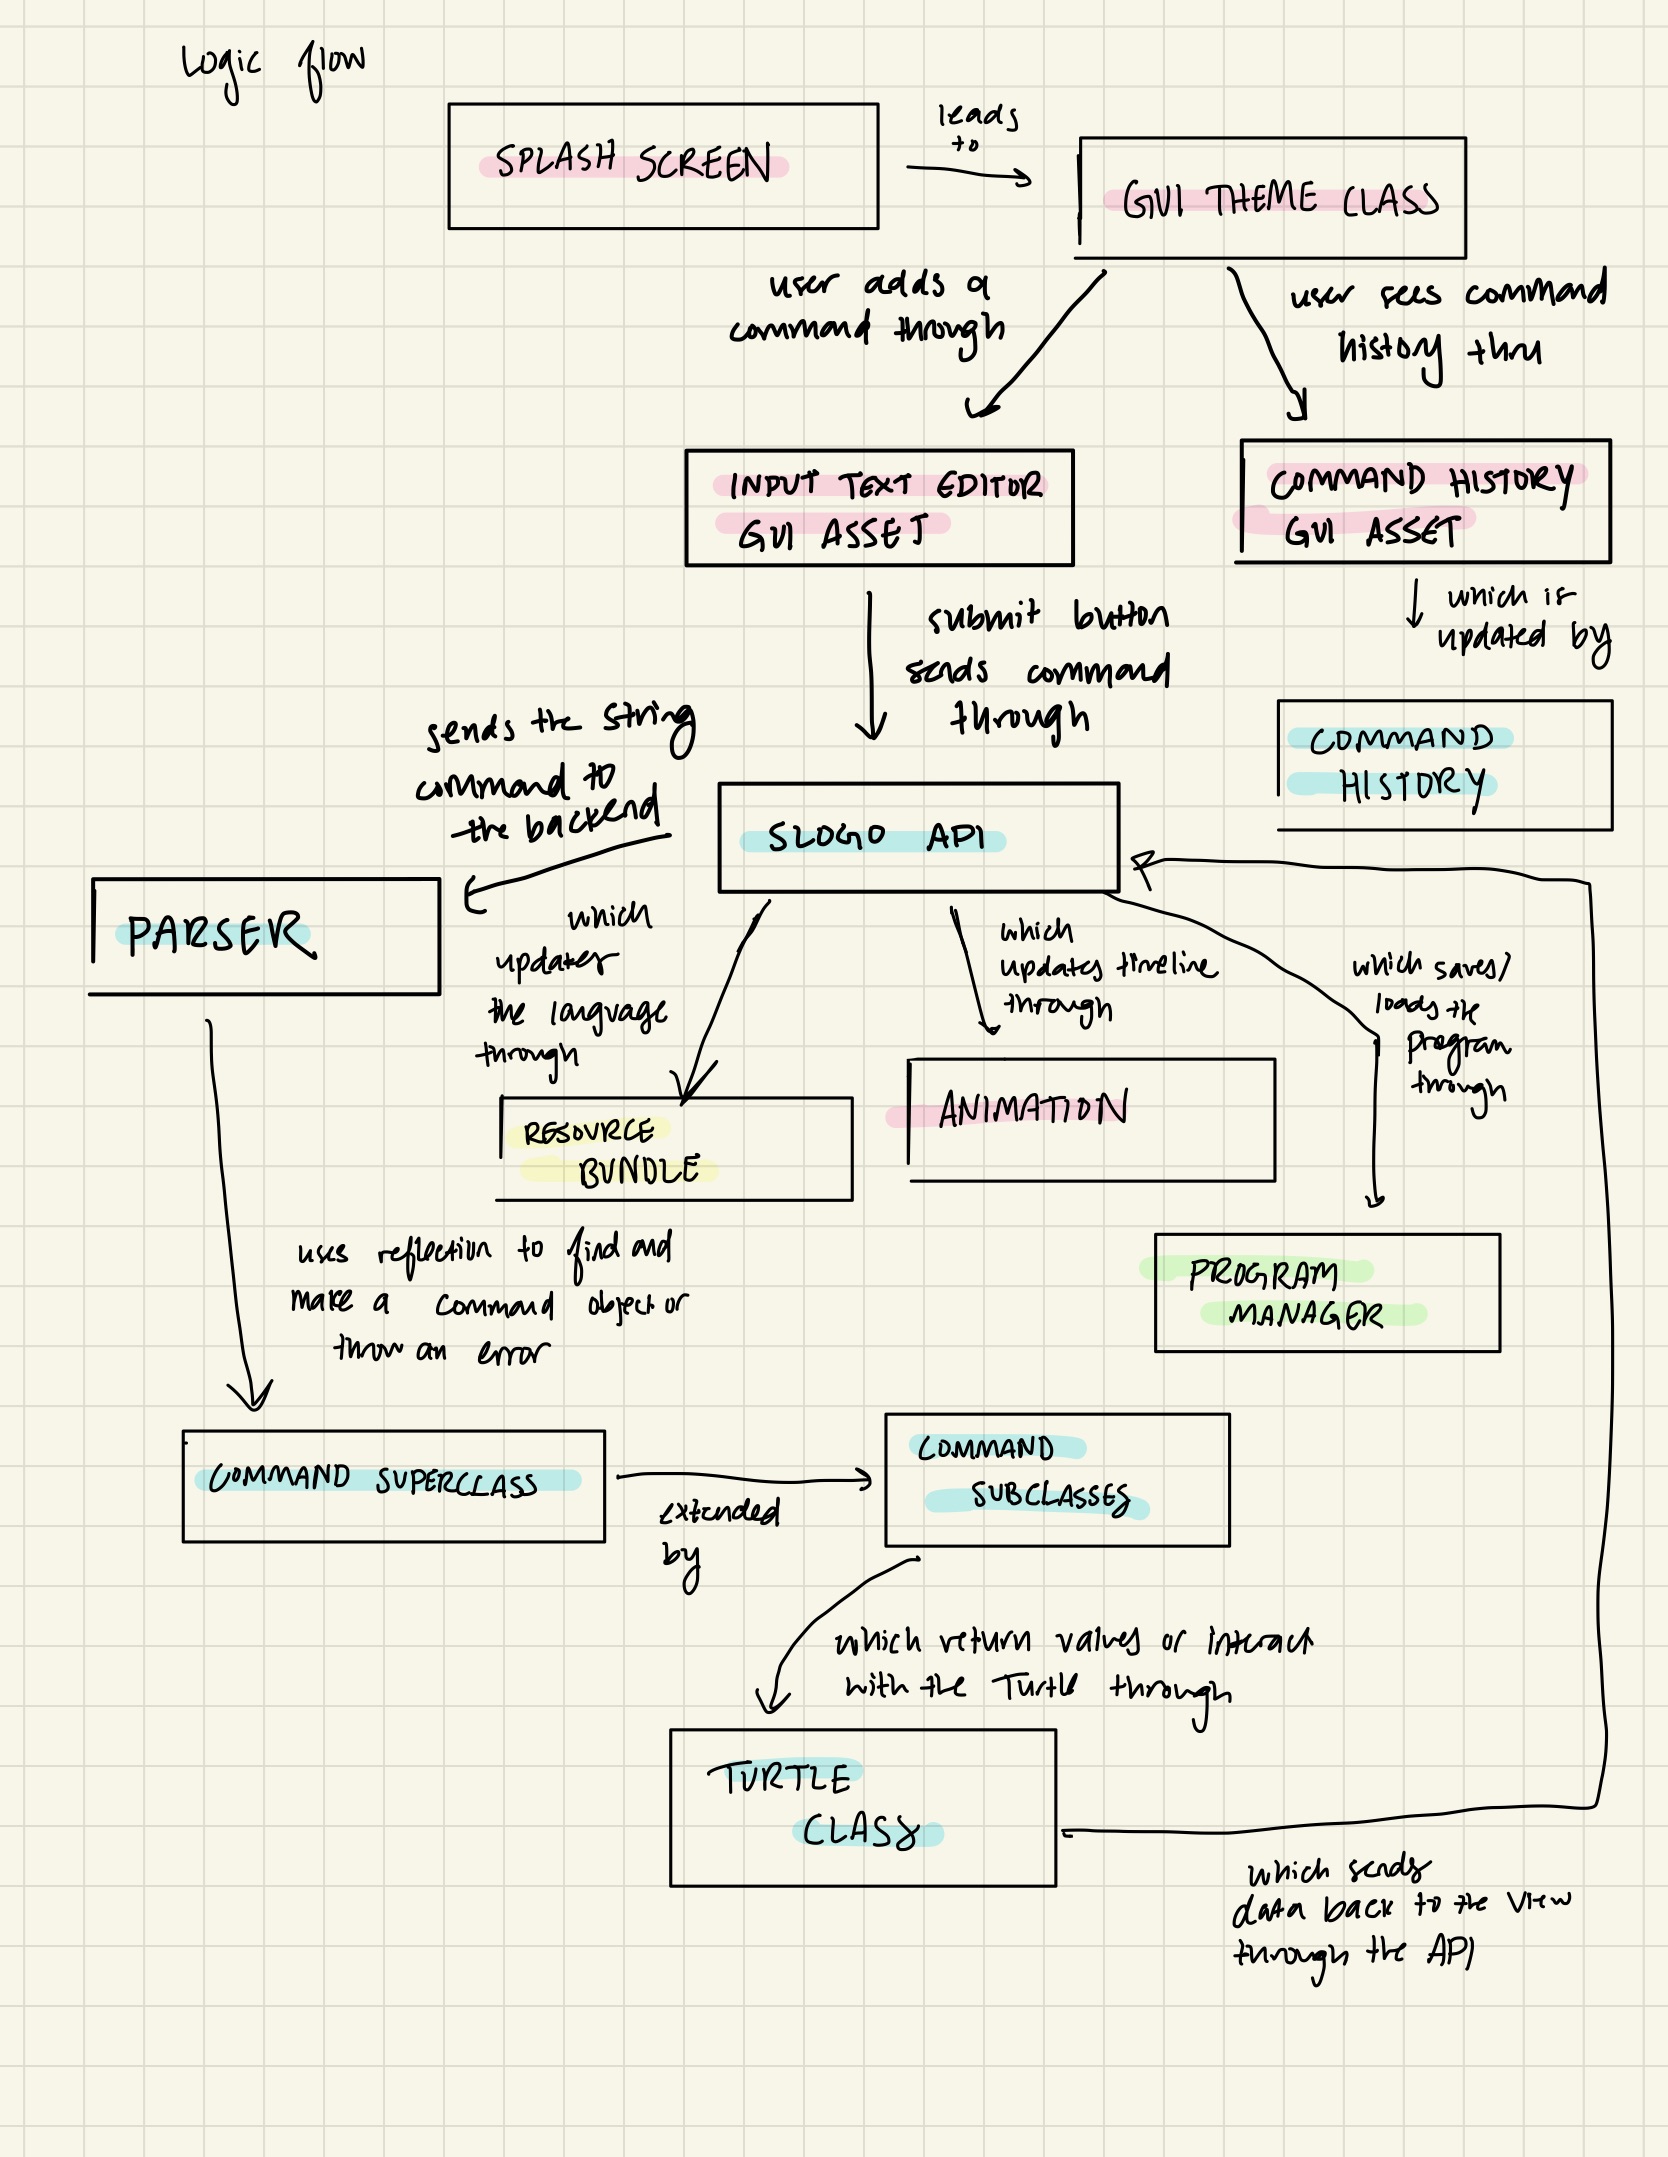 Logic flow
SPLASH SCREEN
leads
to
GUI THEME CLASS
user adds a
command through
user sees command
history thru
INPUT TEXT EDITOR
GUI ASSET
COMMAND HISTORY
GUI ASSET
which is
updated by
submit button
sends command
through
COMMAND
HISTORY
sends the string
command to
the backend
SLOGO API
PARSER
which
updates
the language
through
which
updates timeline
through
which saves/
loads the
program
through
RESOURCE
BUNDLE
ANIMATION
PROGRAM
MANAGER
uses reflection to find and
make a command object or
throw an error
COMMAND SUPERCLASS
extended
by
COMMAND
SUBCLASSES
which return values or interact
with the Turtle through
TURTLE
CLASS
which sends
data back to the view
through the API